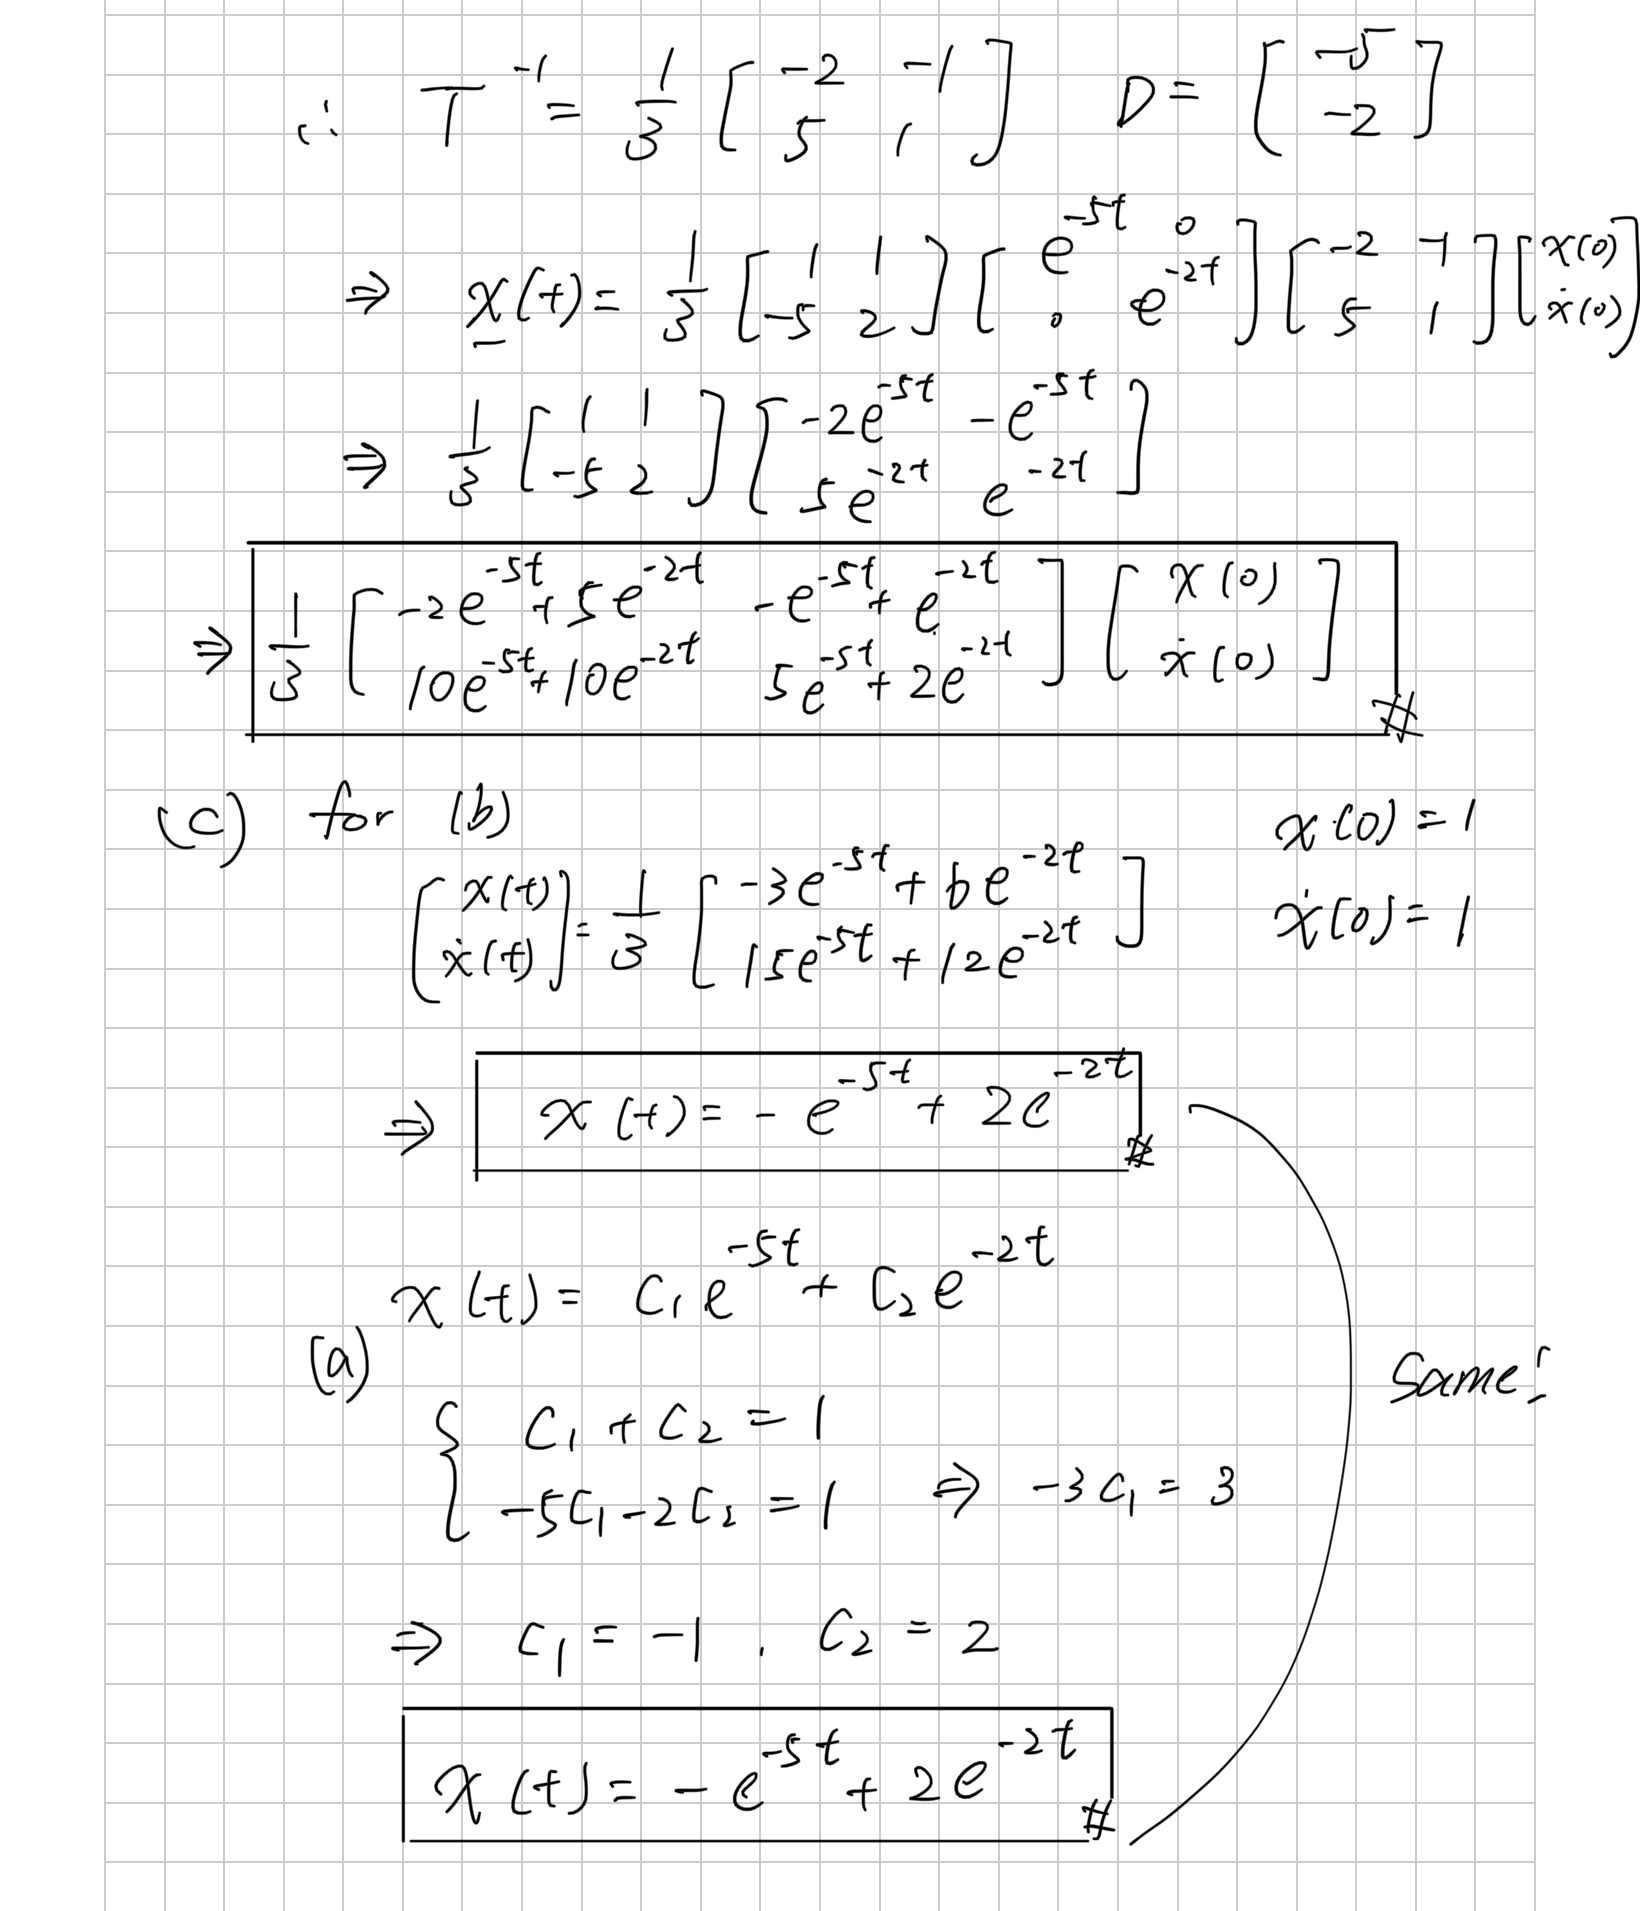 ∴ T^{-1} = 1/3 [ -2 -1 ; 5 1 ] D = [ -5 ; -2 ]
⇒ x(t) = 1/3 [ 1 1 ; -5 2 ] [ e^{-5t} 0 ; 0 e^{-2t} ] [ -2 -1 ; 5 1 ] [ x(0) ; ẋ(0) ]
⇒ 1/3 [ 1 1 ; -5 2 ] [ -2e^{-5t} -e^{-5t} ; 5e^{-2t} e^{-2t} ]
⇒ 1/3 [ -2e^{-5t} + 5e^{-2t} -e^{-5t} + e^{-2t} ; 10e^{-5t} + 10e^{-2t} 5e^{-5t} + 2e^{-2t} ] [ x(0) ; ẋ(0) ] #
(c) for (b) x(0) = 1
[ x(t) ; ẋ(t) ] = 1/3 [ -3e^{-5t} + 6e^{-2t} ; 15e^{-5t} + 12e^{-2t} ] ẋ(0) = 1
⇒ x(t) = - e^{-5t} + 2e^{-2t} #
x(t) = C₁e^{-5t} + C₂e^{-2t}
(a)
Same!
{ C₁ + C₂ = 1
-5C₁ - 2C₂ = 1 ⇒ -3C₁ = 3
⇒ C₁ = -1 . C₂ = 2
x(t) = - e^{-5t} + 2e^{-2t} #